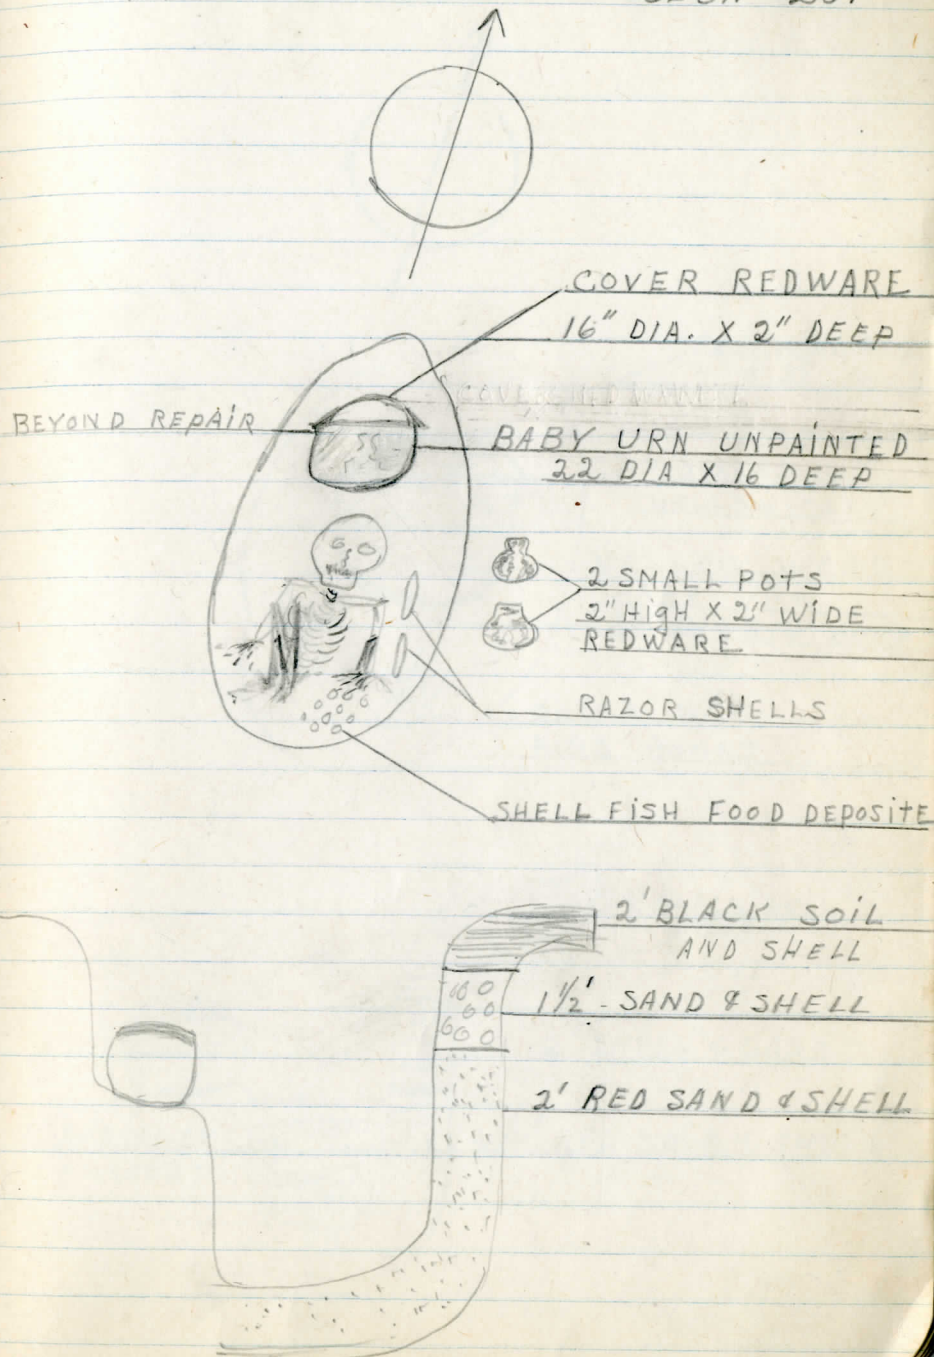 COVER REDWARE
16" DIA. X 2" DEEP
BEYOND REPAiR
BABY URN UNPAiNTED
22 DIA X 16 DEEP
2 SMALL POTS
2" HIGH X 2" WiDE
REDWARE
RAZOR SHELLS
SHELL FiSH FOOD DEPOSITE
2' BLACK SOiL
AND SHELL
1 1/2' - SAND & SHELL
2' RED SAND & SHELL